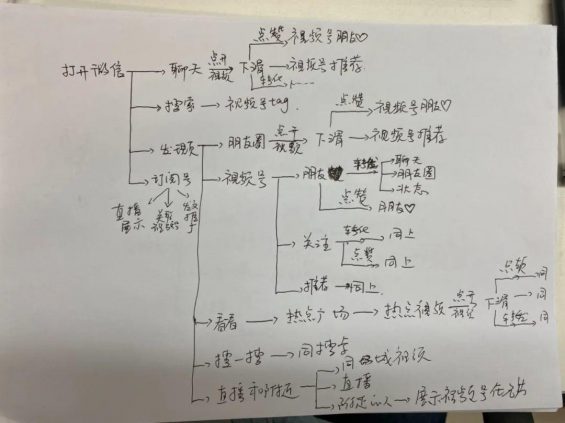 打开微信
聊天 点开视频 下滑 点赞 视频号朋友♡
视频号推荐
转化
搜索 视频号tag
发现页 朋友圈 点开视频 下滑 点赞 视频号朋友♡
视频号推荐
视频号 朋友 转发 聊天
朋友圈
状态
点赞 朋友♡
关注 转化 同上
点赞 同上
推荐 同上
看看 热点广场 热点视频 点开视频 下滑 点赞 同
同
同
搜一搜 同搜索
直播和附近 同城视频
直播
附近的人 展示视频号
订阅号
直播展示